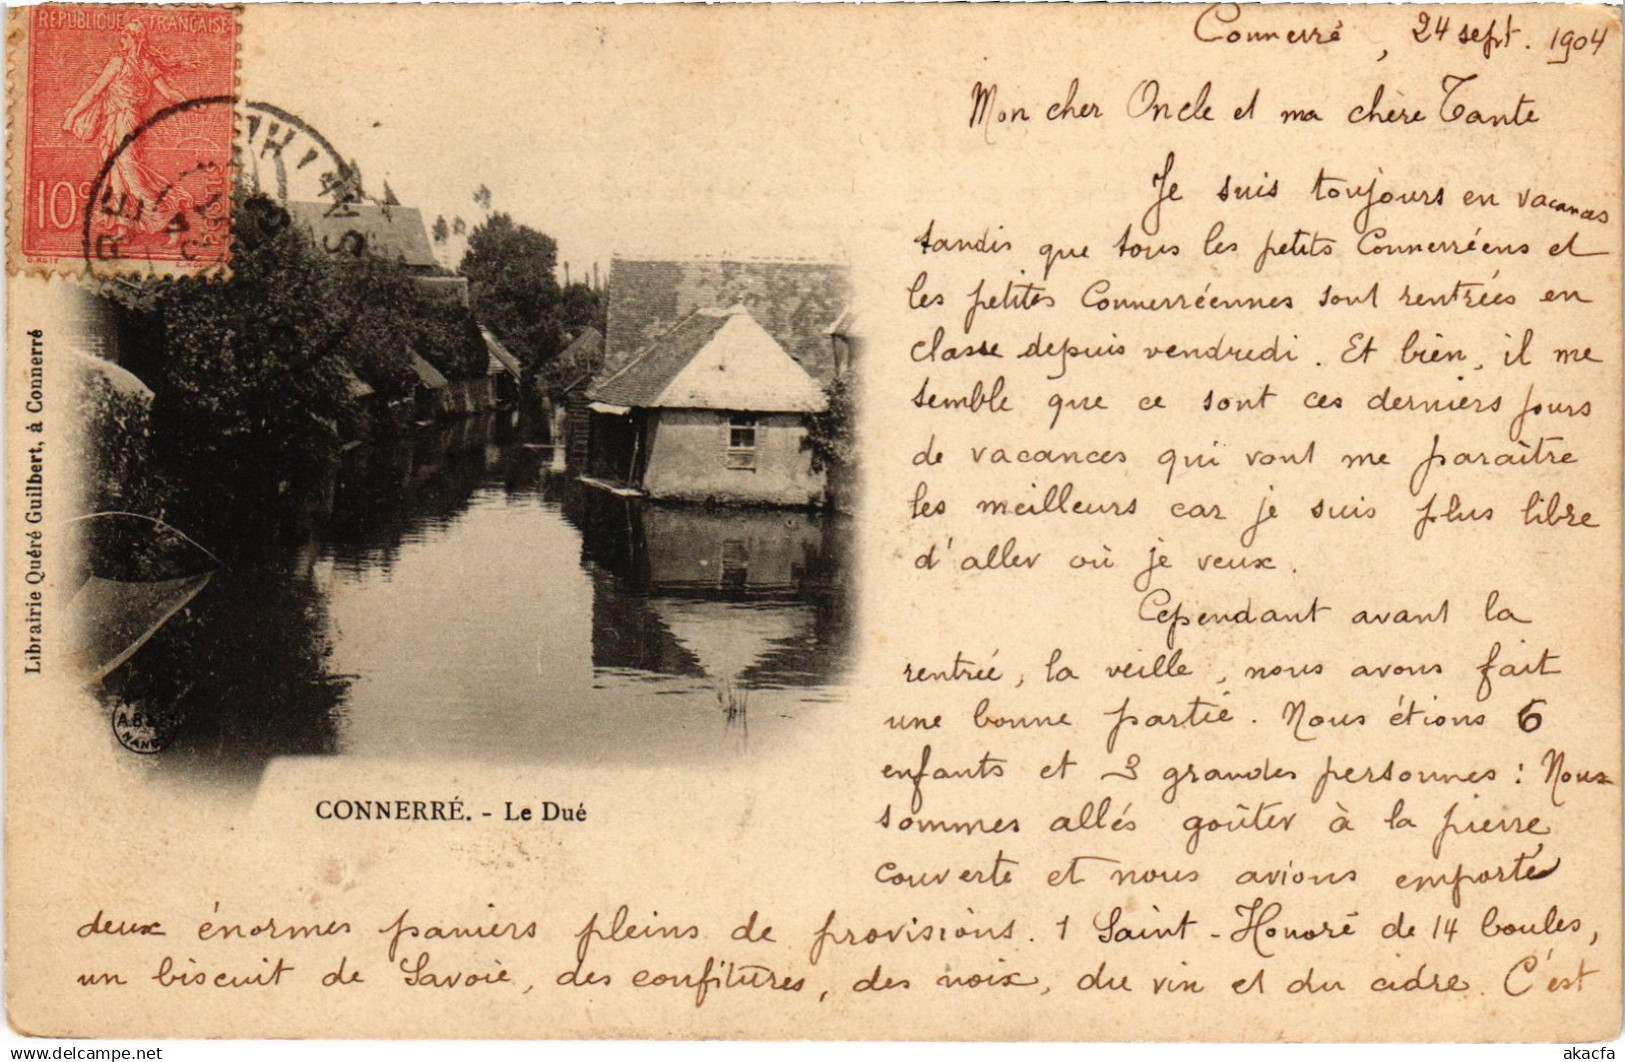 RÉPUBLIQUE FRANÇAISE
10c
POSTES
Connerré, 24 sept. 1904
Mon cher Oncle et ma chère Tante
Je suis toujours en vacances
tandis que tous les petits Connerréens et
les petites Connerréennes sont rentrées en
classe depuis vendredi. Et bien, il me
semble que ce sont ces derniers jours
de vacances qui vont me paraître
les meilleurs car je suis plus libre
d'aller où je veux.
Cependant avant la
rentrée, la veille, nous avons fait
une bonne partie. Nous étions 6
enfants et 3 grandes personnes : Nous
sommes allés goûter à la pierre
couverte et nous avions emporté
deux énormes paniers pleins de provisions. 1 Saint-Honoré de 14 boules,
un biscuit de Savoie, des confitures, des noix, du vin et du cidre. C'est
Librairie Quéré Guilbert, à Connerré
CONNERRÉ. - Le Dué
delcampe.net
akacfa